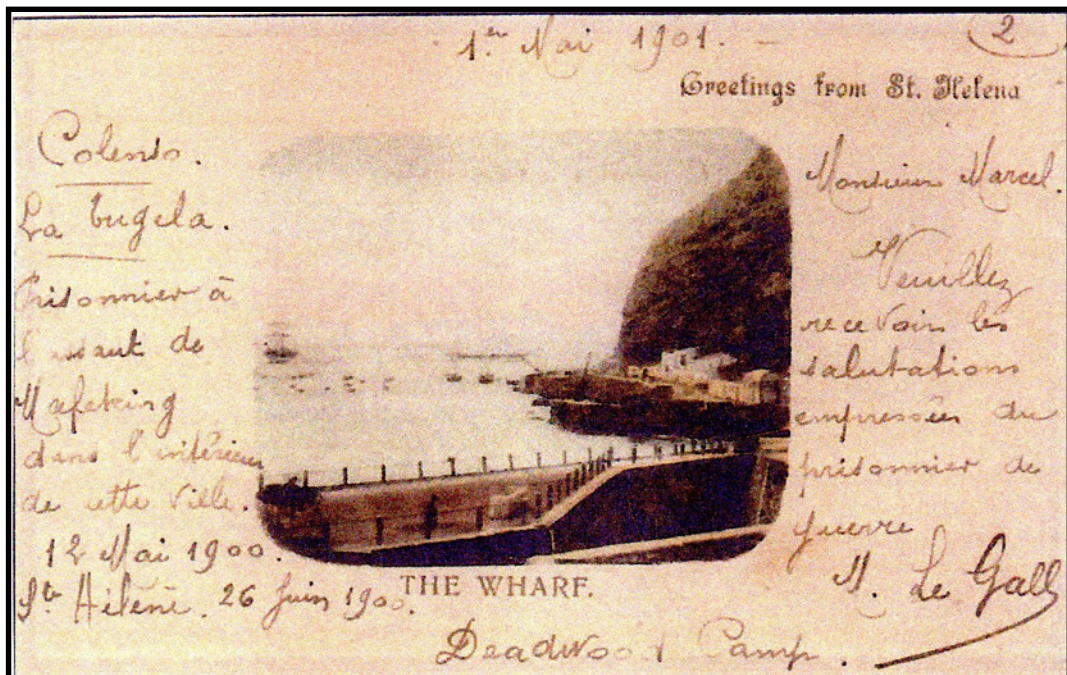 1er Mai 1901. -
2
Greetings from St. Helena
Colenso.
La tugela.
Prisonnier à
l'assaut de
Mafeking
dans l'intérieur
de cette ville.
12 Mai 1900.
Ste Hélène. 26 Juin 1900.
Monsieur Marcel.
Veuillez
recevoir les
salutations
empressées du
prisonnier de
guerre
M. Le Gall
THE WHARF.
Deadwood Camp.